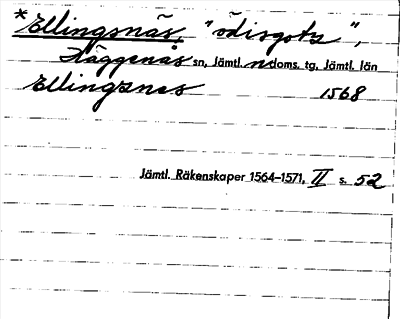 *Ellingsnäs, "ödisgots",
Häggenås sn, Jämtl. n doms. tg, Jämtl. län
Ellingznes 1568
Jämtl. Räkenskaper 1564–1571, II s. 52